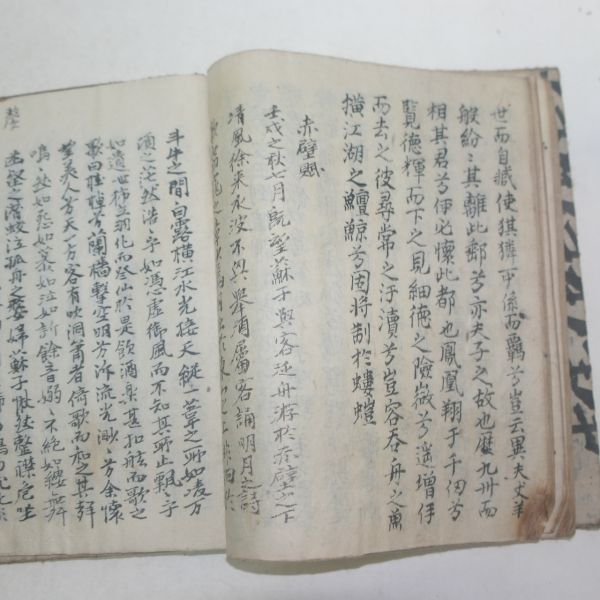 世而自藏使猉獜可係而羈兮豈云異夫犬羊
般紛紛其離此郵兮亦夫子之故也歷九州而
相其君兮伊必懷此都也鳳凰翔于千仞兮
覽德輝而下之見細德之險微兮遙增
而去之彼尋常之汙瀆兮豈容吞舟之魚
橫江湖之鱣鯨兮固將制於螻螘
赤壁賦
壬戌之秋七月旣望蘇子與客泛舟游於赤壁之下
淸風徐來水波不興擧酒屬客誦明月之詩
斗牛之間白露橫江水光接天縱一葦之所如凌万
頃之茫然浩浩乎如憑虛御風而不知其所止飄飄乎
如遺世独立羽化而登仙於是飮酒樂甚扣舷而歌之
歌曰桂棹兮蘭槳擊空明兮泝流光渺渺兮余懷
望美人兮天一方客有吹洞簫者倚歌而和之其聲
嗚嗚然如怨如慕如泣如訴餘音嫋嫋不絶如縷舞
幽壑之潛蛟泣孤舟之嫠婦蘇子愀然整襟危坐